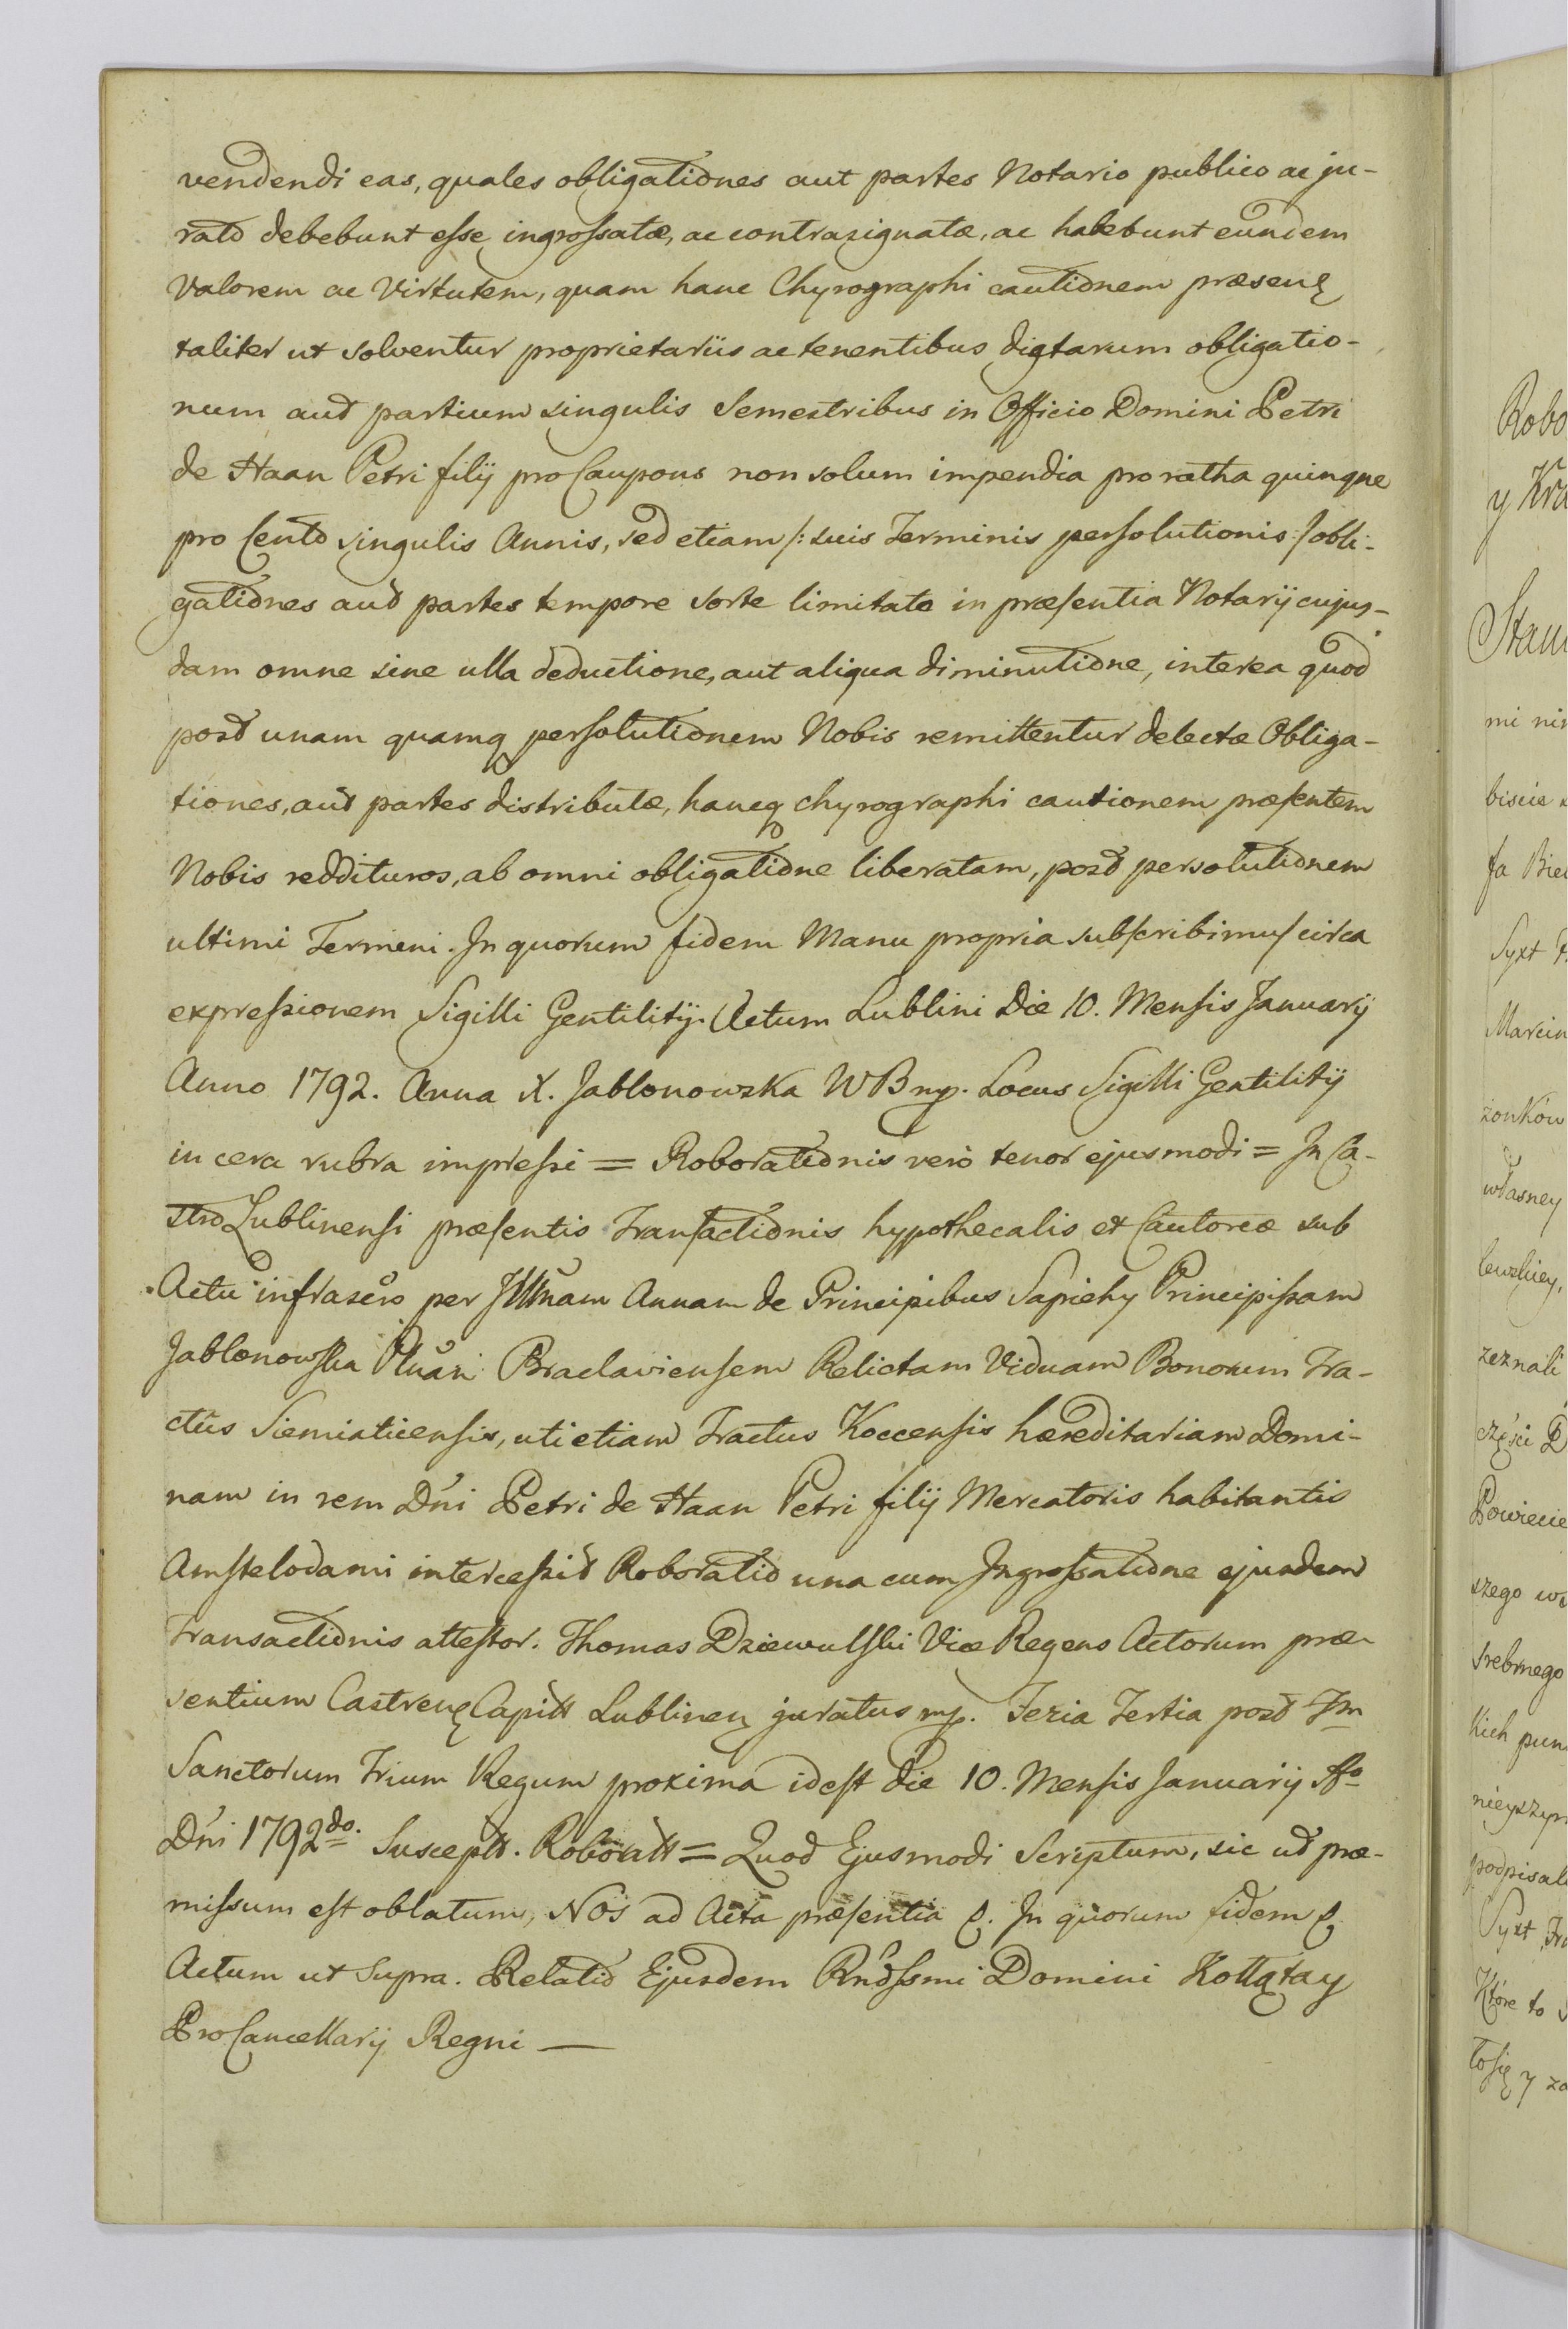 vendendi eas, quales obligationes aut partes Notario publico ac ju-
rato debebunt esse ingrossatæ, ac contrasignatæ, ac habebunt eundem
Valorem ac Virtutem, quam hanc Chyrographi cautionem præsenę
taliter ut solventur proprietariis ac tenentibus dictarum obligatio-
num aut partium singulis Semestribus in Officio Domini Petri
de Haan Petri filij pro Caupons non solum impendia pro ratha quinque
pro Cento singulis Annis, sed etiam /: suis Terminis persolutionis :/ obli-
gationes aut partes tempore sorte limitato in præsentia Notarij cujus-
dam omne sine ulla deductione, aut aliqua diminutione, interea quod
post unam quamq persolutionem Nobis remittentur delectæ Obliga-
tiones, aut partes distributæ, hancq chyrographi cautionem præsentem
Nobis reddituros, ab omni obligatione liberatam, post persolutionem
ultimi Termini. In quorum fidem Manu propria subscribimus circa
expressionem Sigilli Gentilitij. Actum Lublini Die 10. Mensis Januarij
Anno 1792. Anna X. Jabłonowska WB mp. Locus Sigilli Gentilitij
in cera rubra impressi = Roborationis vero tenor ejusmodi = In Ca-
stro Lublinensi præsentis Transactionis hypothecalis et Cautoreæ sub
Actu infrascro per Jllmam Annam de Principibus Sapiehy Principissam
Jabłonowska Pluari Braclaviensem Relictam Viduam Bonorum Tra-
ctus Siemiaticensis, uti etiam Tractus Koccensis hæreditariam Domi-
nam in rem Dni Petri de Haan Petri filij Mercatoris habitantis
Amstelodami intercessit Roboratio una cum Ingrossatione ejusdem
Transactionis attestor. Thomas Dziewulski Vice Regens Actorum præ-
sentium Castrenę Capitt Lublinenę juratus mp. Feria Tertia post Fm
Sanctorum Trium Regum proxima id est die 10. Mensis Januarij Ao
Dni 1792do. Susceptt. Roboratt = Quod Ejusmodi Scriptum, sic ut præ-
missum est oblatum, Nos ad Acta præsentia &. In quorum fidem &
Actum ut Supra. Relatio Ejusdem Rndssmi Domini Kołłątay
Pro Cancellarij Regni —